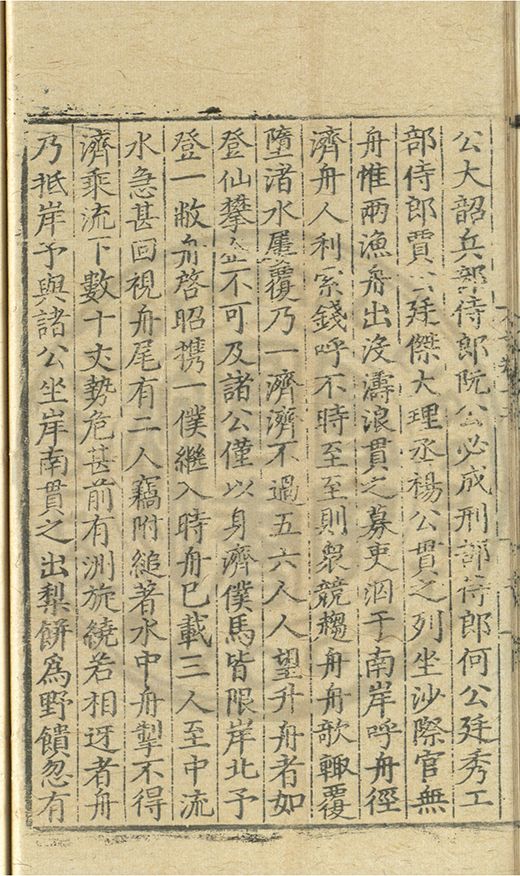 公大韶兵部侍郎阮公必成刑部侍郎何公廷秀工
部侍郎賈公廷傑大理丞楊公貫之列坐沙際官無
舟惟兩漁舟出没濤浪貫之募吏泅于南岸呼舟徑
濟舟人利索錢呼不時至至則衆競趨舟舟欹輙覆
墮渚水屢覆乃一濟濟不過五六人人望升舟者如
登仙攀企不可及諸公僅以身濟僕馬皆限岸北予
登一敝舟啓昭携一僕繼入時舟已載三人至中流
水急甚回視舟尾有二人竊附縋著水中舟掣不得
濟乘流下數十丈勢危甚前有洲旋繞若相迓者舟
乃抵岸予與諸公坐岸南貫之出梨餅爲野饋忽有